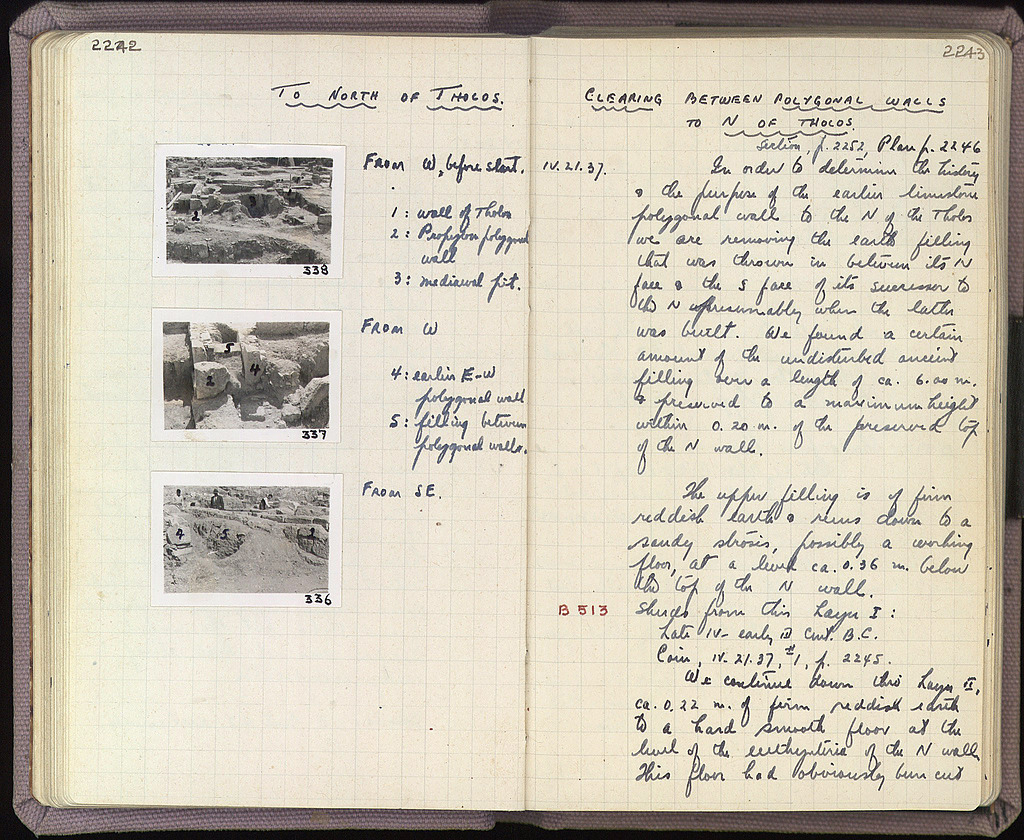 2242
TO NORTH OF THOLOS.
FROM W, before start.
1: wall of Tholos
2: Propylon polygonal
wall
3: mediaeval pit.
338
FROM W
4: earlier E-W
polygonal wall
5: filling between
polygonal walls.
337
FROM SE.
336
2243
CLEARING BETWEEN POLYGONAL WALLS
TO N OF THOLOS.
Section, p. 2252, Plan p. 2246
IV.21.37.
In order to determine the history
& the purpose of the earlier limestone
polygonal wall to the N of the Tholos
we are removing the earth filling
that was thrown in between its N
face & the S face of its successor to
the N presumably when the latter
was built. We found a certain
amount of the undisturbed ancient
filling over a length of ca. 6.00 m.
& preserved to a maximum height
within 0.20 m. of the preserved top
of the N wall.
The upper filling is of firm
reddish earth & runs down to a
sandy strosis, possibly a working
floor, at a level ca. 0.36 m. below
the top of the N wall.
B 513
Sherds from this Layer I:
Late IV - early III Cent. B.C.
Coin, IV.21.37, #1, p. 2245.
We continue down thro Layer II,
ca. 0.22 m. of firm reddish earth
to a hard smooth floor at the
level of the euthynteria of the N wall
This floor had obviously been cut